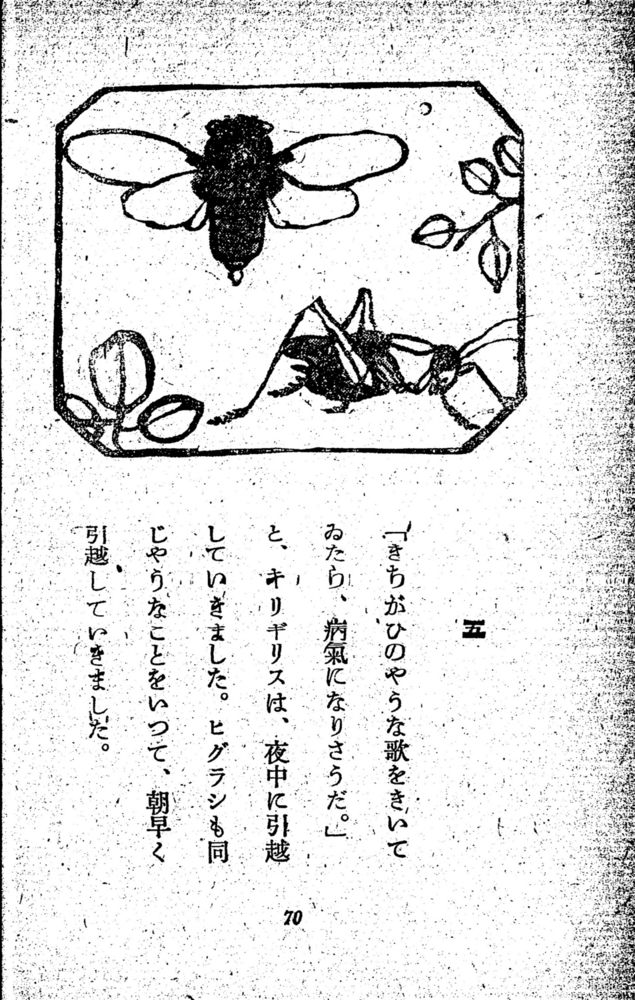 五
「きちがひのやうな歌をきいて
ゐたら、病氣になりさうだ。」
と、キリギリスは、夜中に引越
していきました。ヒグラシも同
じやうなことをいつて、朝早く
引越していきました。
70